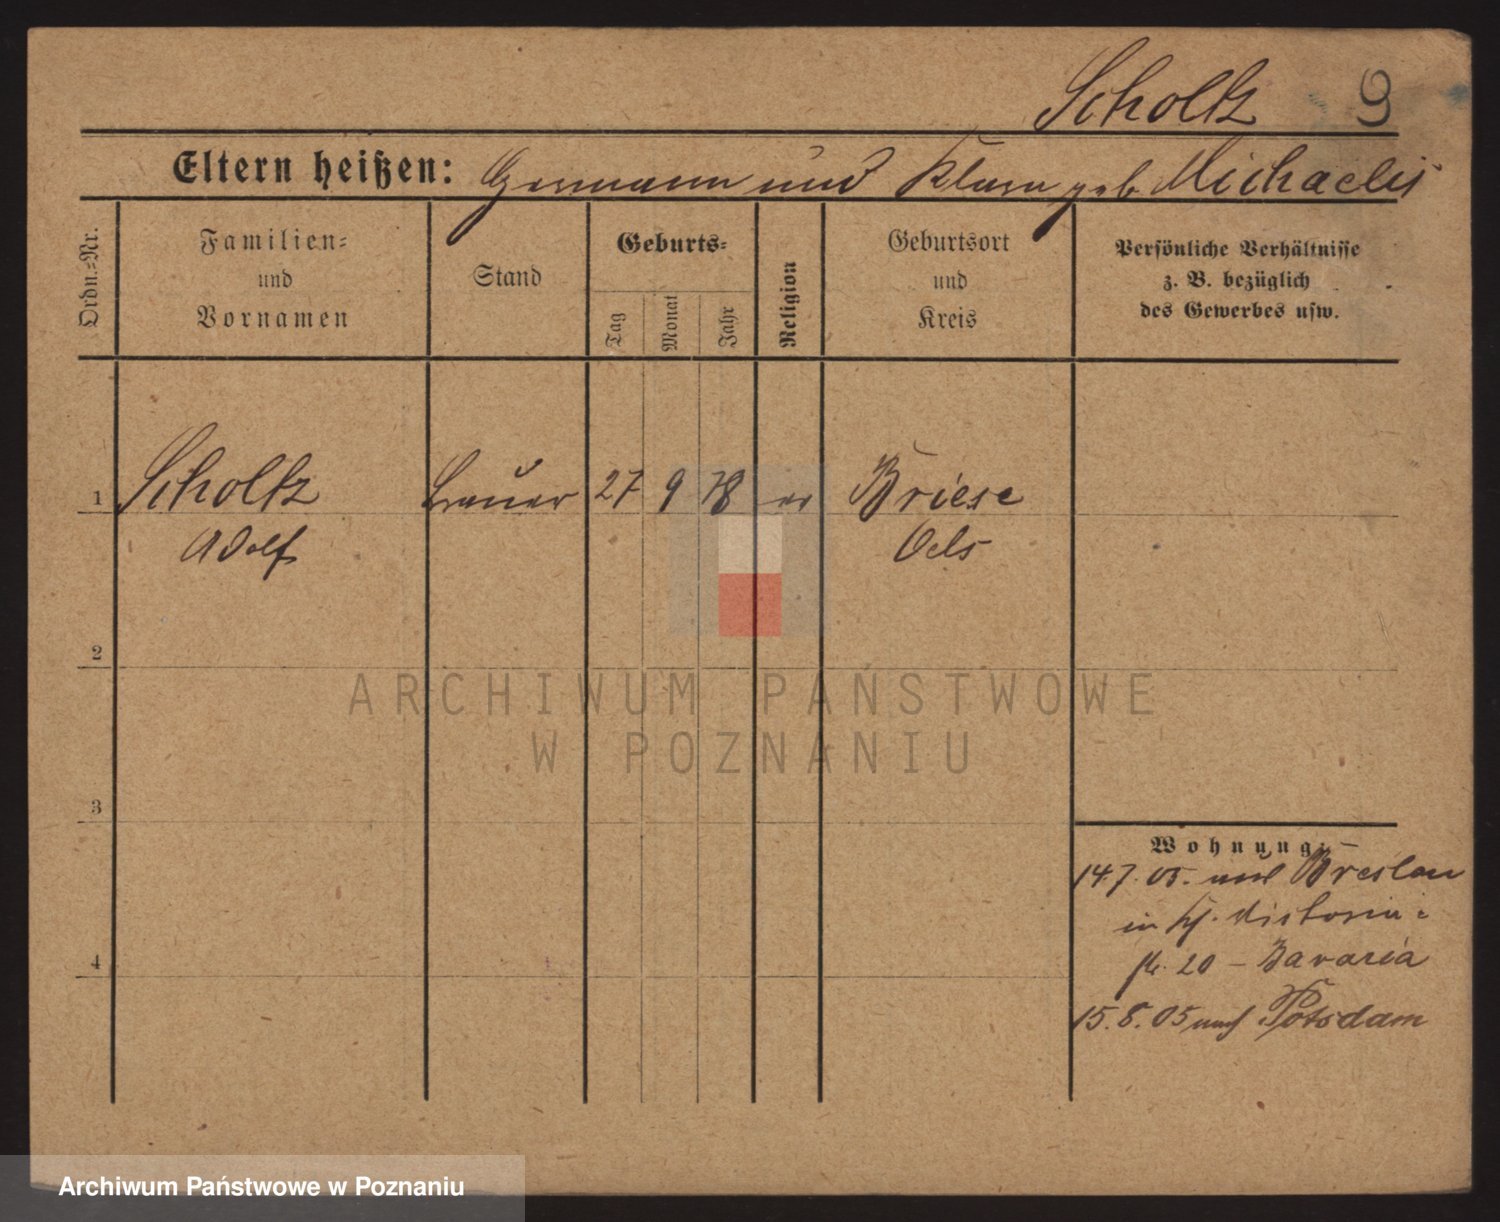 Scholtz 9
Eltern heißen: Hermann und Klara geb Michaelis
Ordn.=Nr.
Familien=
und
Vornamen
Stand
Geburts=
Tag
Monat
Jahr
Religion
Geburtsort
und
Kreis
Persönliche Verhältnisse
z. B. bezüglich
des Gewerbes usw.
1 Scholtz Brauer 27 9 78 ev Briese
Adolf Oels
2
3
4
Wohnung:
14.7.05. Breslau
in
20 - Bavaria
15.8.05 nach Potsdam
ARCHIWUM PAŃSTWOWE
W POZNANIU
Archiwum Państwowe w Poznaniu